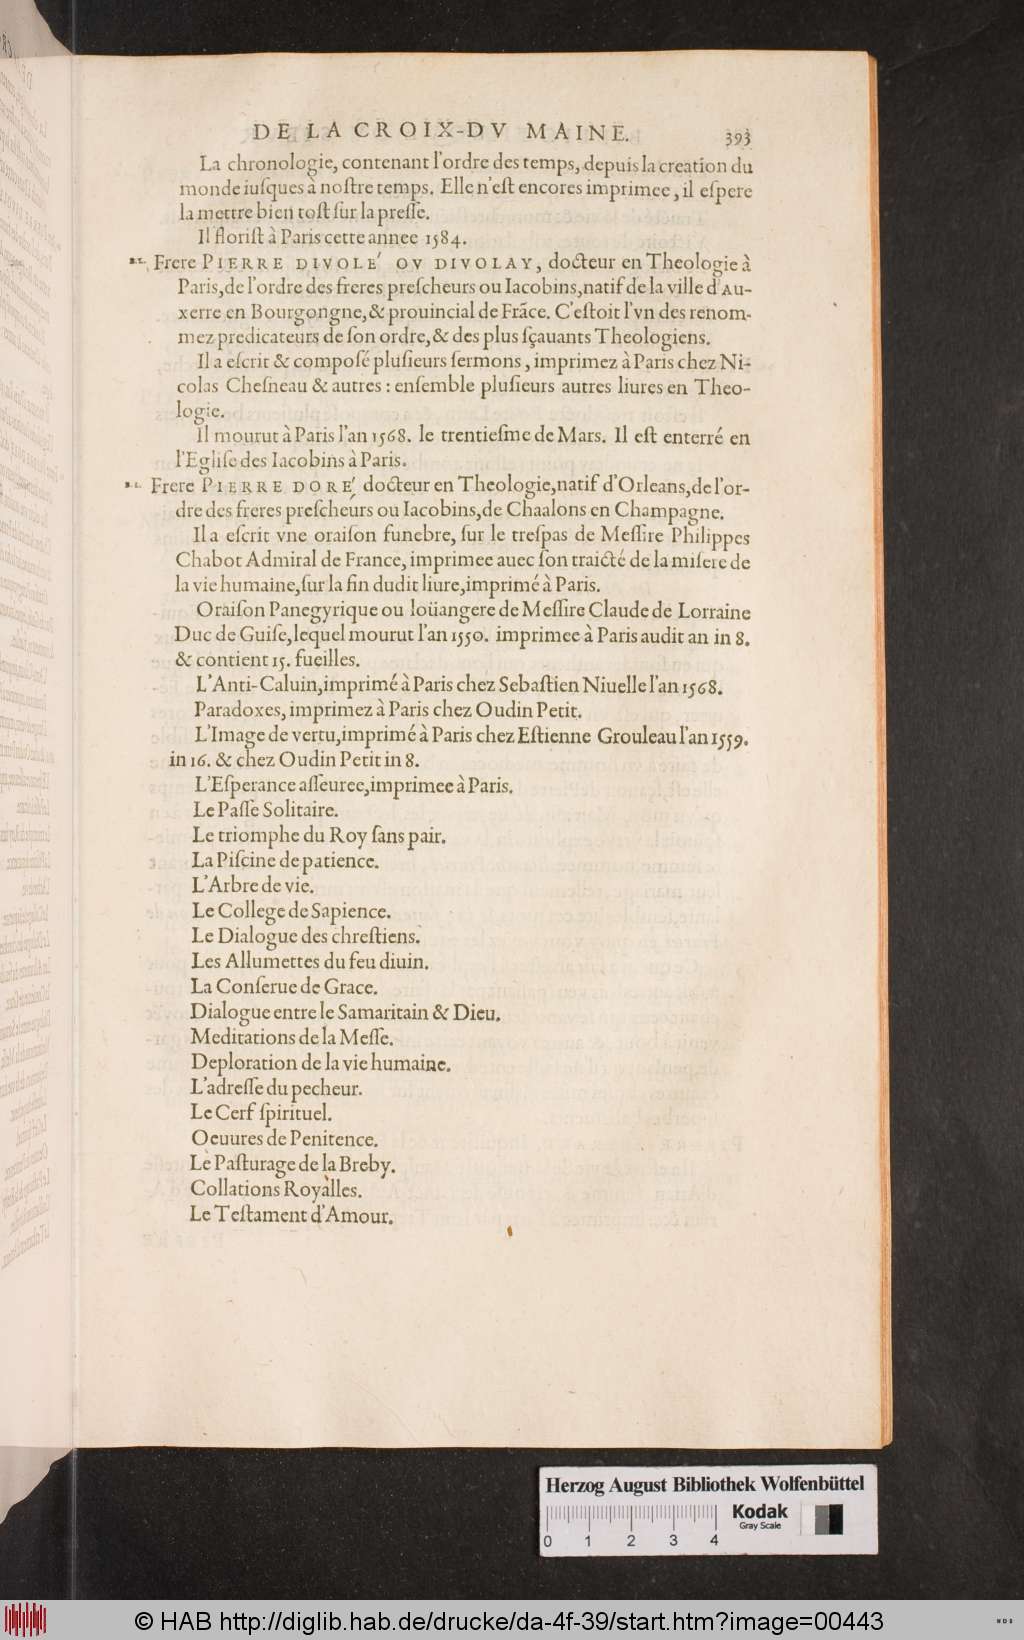 DE LA CROIX-DV MAINE. 393
La chronologie, contenant l'ordre des temps, depuis la creation du
monde iuſques à noſtre temps. Elle n'eſt encores imprimee, il eſpere
la mettre bien toſt ſur la preſſe.
Il floriſt à Paris cette annee 1584.
Frere PIERRE DIVOLE' OV DIVOLAY, docteur en Theologie à
Paris, de l'ordre des freres preſcheurs ou Iacobins, natif de la ville d'Au-
xerre en Bourgongne, & prouincial de Frãce. C'eſtoit l'vn des renom-
mez predicateurs de ſon ordre, & des plus ſçauants Theologiens.
Il a eſcrit & compoſé pluſieurs ſermons, imprimez à Paris chez Ni-
colas Cheſneau & autres : enſemble pluſieurs autres liures en Theo-
logie.
Il mourut à Paris l'an 1568. le trentieſme de Mars. Il eſt enterré en
l'Egliſe des Iacobins à Paris.
Frere PIERRE DORE', docteur en Theologie, natif d'Orleans, de l'or-
dre des freres preſcheurs ou Iacobins, de Chaalons en Champagne.
Il a eſcrit vne oraiſon funebre, ſur le treſpas de Meſſire Philippes
Chabot Admiral de France, imprimee auec ſon traicté de la miſere de
la vie humaine, ſur la fin dudit liure, imprimé à Paris.
Oraiſon Panegyrique ou loüangere de Meſſire Claude de Lorraine
Duc de Guiſe, lequel mourut l'an 1550. imprimee à Paris audit an in 8.
& contient 15. fueilles.
L'Anti-Caluin, imprimé à Paris chez Sebaſtien Niuelle l'an 1568.
Paradoxes, imprimez à Paris chez Oudin Petit.
L'Image de vertu, imprimé à Paris chez Eſtienne Grouleau l'an 1559.
in 16. & chez Oudin Petit in 8.
L'Eſperance aſſeuree, imprimee à Paris.
Le Paſſe Solitaire.
Le triomphe du Roy ſans pair.
La Piſcine de patience.
L'Arbre de vie.
Le College de Sapience.
Le Dialogue des chreſtiens.
Les Allumettes du feu diuin.
La Conſerue de Grace.
Dialogue entre le Samaritain & Dieu.
Meditations de la Meſſe.
Deploration de la vie humaine.
L'adreſſe du pecheur.
Le Cerf ſpirituel.
Oeuures de Penitence.
Le Paſturage de la Breby.
Collations Royalles.
Le Teſtament d'Amour.
Herzog August Bibliothek Wolfenbüttel
0 1 2 3 4
Kodak
Gray Scale
© HAB http://diglib.hab.de/drucke/da-4f-39/start.htm?image=00443